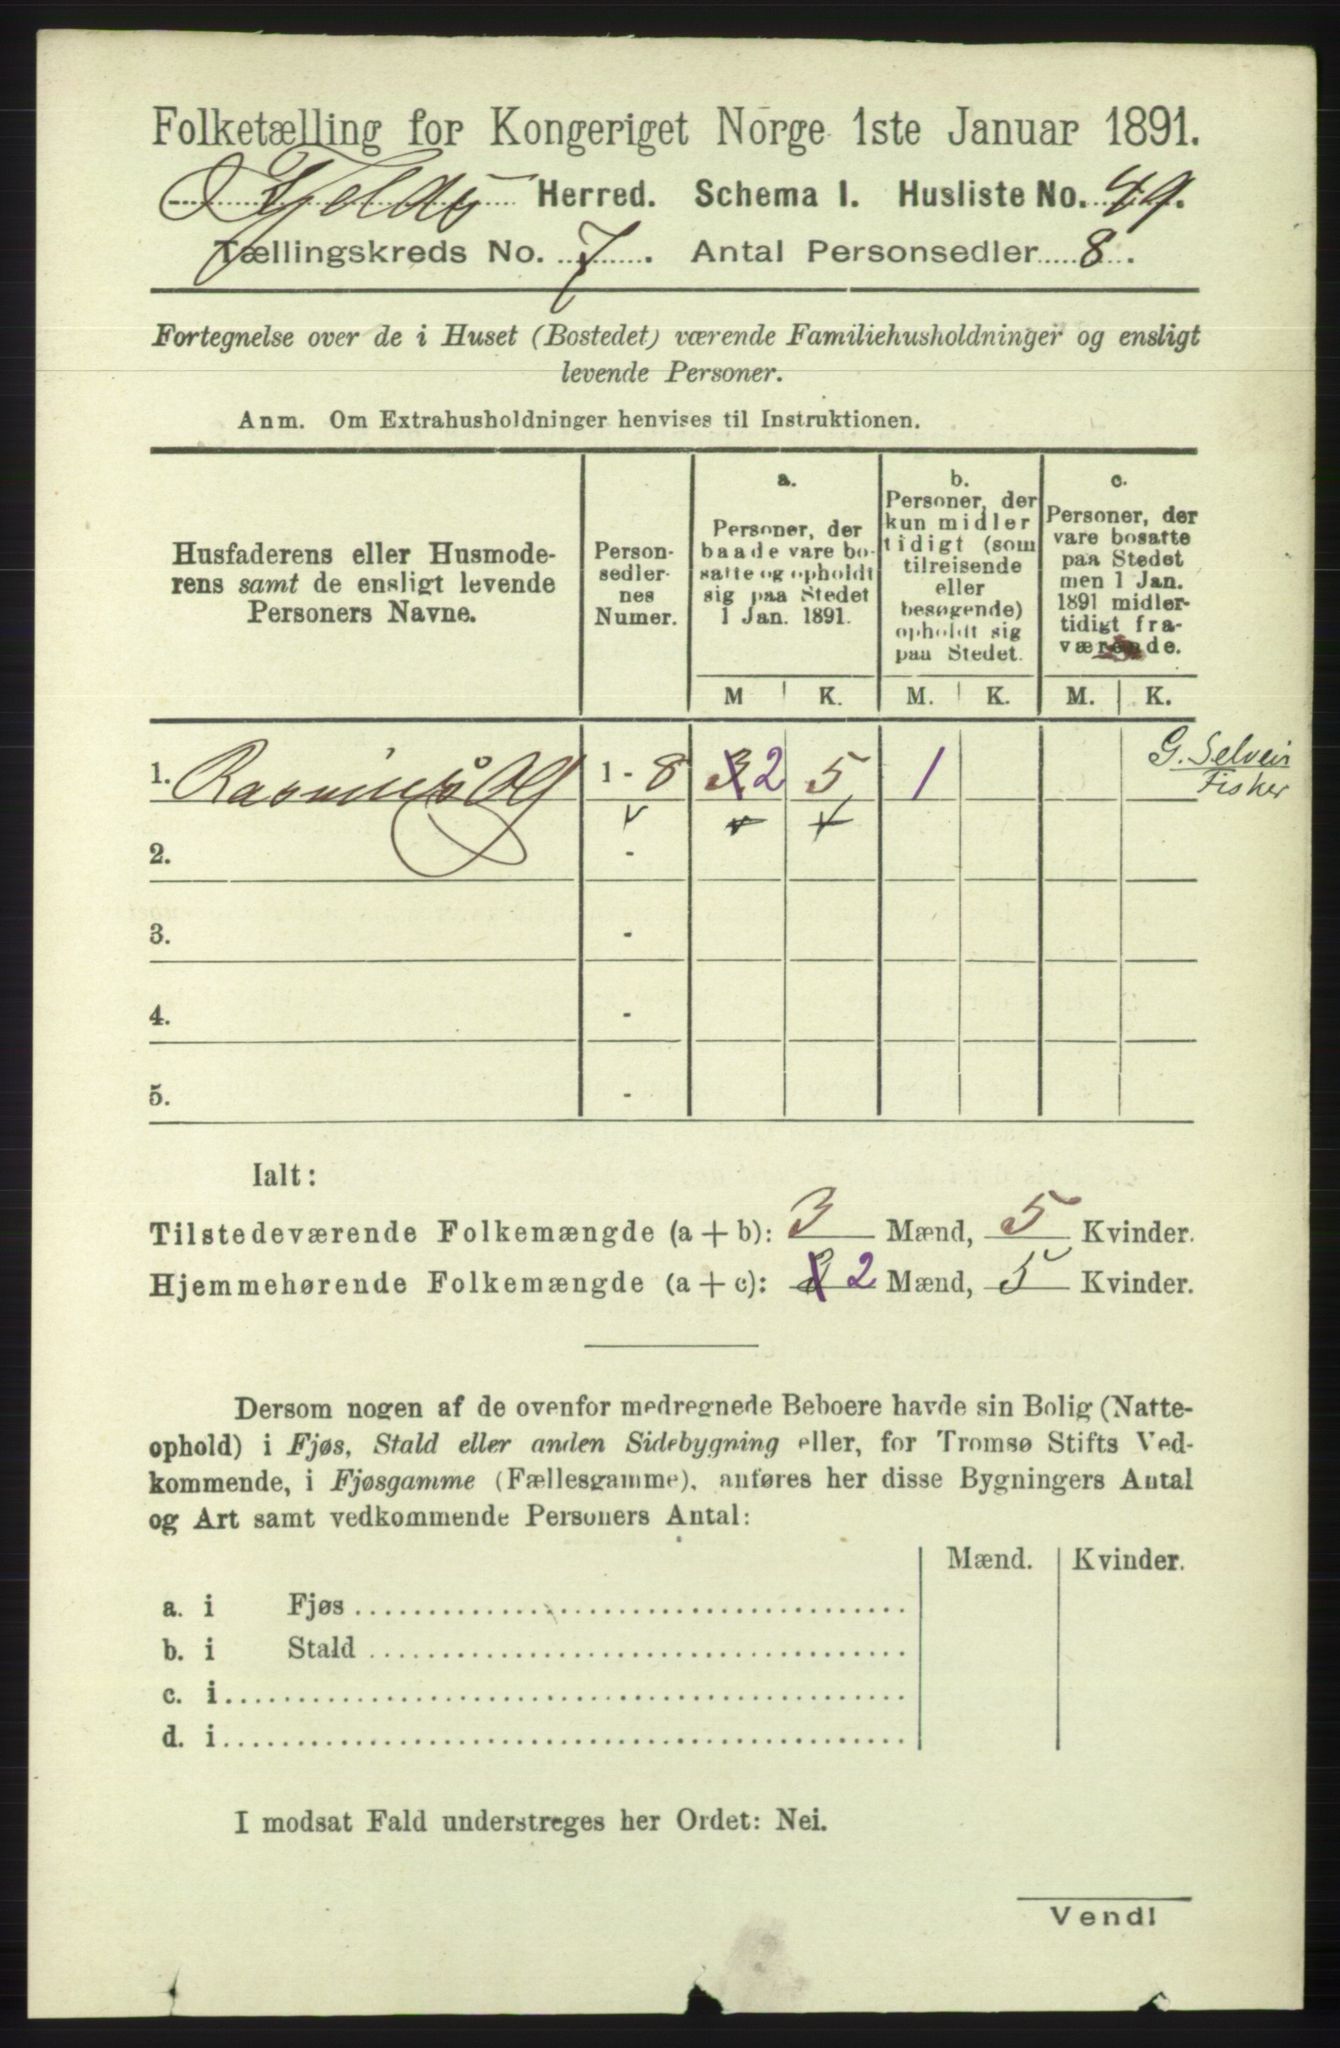 Folketælling for Kongeriget Norge 1ste Januar 1891.
Herred. Schema I. Husliste No. 49.
Tællingskreds No. 7. Antal Personsedler 8.
Fortegnelse over de i Huset (Bostedet) værende Familiehusholdninger og ensligt
levende Personer.
Anm. Om Extrahusholdninger henvises til Instruktionen.
Husfaderens eller Husmode-
rens samt de ensligt levende
Personers Navne.
Person-
sedler-
nes
Numer.
a.
Personer, der
baade vare bo-
satte og opholdt
sig paa Stedet
1 Jan. 1891.
b.
Personer, der
kun midler
tidigt (som
tilreisende
eller
besøgende)
opholdt sig
paa Stedet.
c.
Personer, der
vare bosatte
paa Stedet
men 1 Jan.
1891 midler-
tidigt fra-
værende.
M K. M. K. M. K.
1. Rasmus 1 - 8 3 2 5 1
G. Selveier
Fisker
2. -
3. -
4. -
5. -
Ialt:
Tilstedeværende Folkemængde (a + b): 3 Mænd, 5 Kvinder.
Hjemmehørende Folkemængde (a + c): 3 2 Mænd, 5 Kvinder.
Dersom nogen af de ovenfor medregnede Beboere havde sin Bolig (Natte-
ophold) i Fjøs, Stald eller anden Sidebygning eller, for Tromsø Stifts Ved-
kommende, i Fjøsgamme (Fællesgamme), anføres her disse Bygningers Antal
og Art samt vedkommende Personers Antal:
Mænd. Kvinder.
a. i Fjøs
b. i Stald
c. i
d. i
I modsat Fald understreges her Ordet: Nei.
Vend!